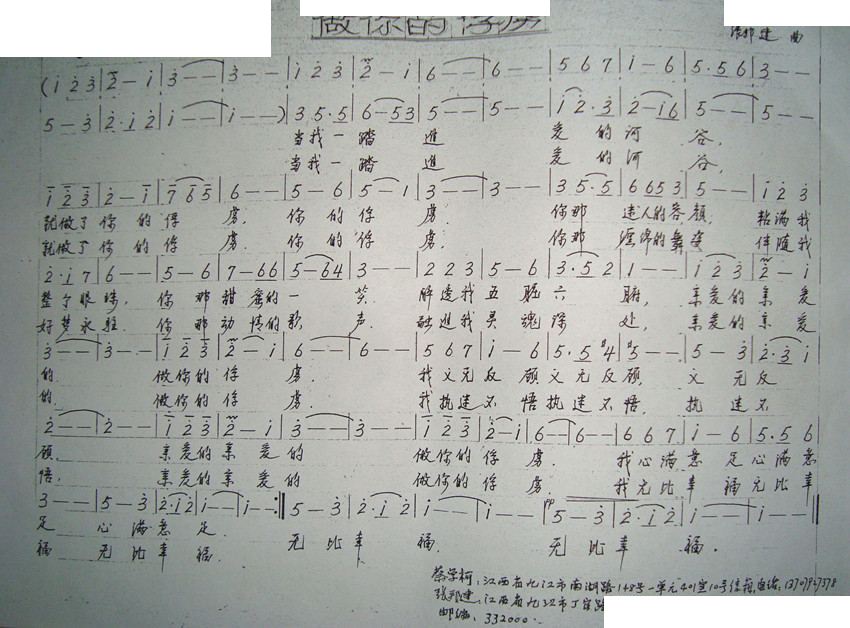 做你的俘虏
张邦建 曲
(i 2 3 | 2 - i | 3 - - | 3 - - | i 2 3 | 2 - i | 6 - - | 6 - - | 5 6 7 | i - 6 | 5·5 6 | 3 - - |
5 - 3 | 2·i 2 | i - - | i - - ) | 3 5·5 | 6 - 53 | 5 - - | 5 - - | i 2·3 | 2 - i6 | 5 - - | 5 - - |
当我一踏 进 爱的河 谷,
当我一踏 进 爱的河 谷,
i 2 3 | 2 - i | 7 6 5 | 6 - - | 5 - 6 | 5 - 1 | 3 - - | 3 - - | 3 5·5 | 6 65 3 | 5 - - | i 2 3 |
就做了你的俘 虏. 你的俘 虏. 你那 迷人的容颜, 粘满我
就做了你的俘 虏. 你的俘 虏. 你那 缠绵的舞姿 伴随我
2·i 7 | 6 - - | 5 - 6 | 7 - 66 | 5 - 64 | 3 - - | 2 2 3 | 5 - 6 | 3·5 2 | 1 - - | i 2 3 | 2 - i |
整个眼球, 你那甜蜜的一 笑. 解透我五脏六 腑, 亲爱的亲爱
好梦永驻. 你那动情的歌 声. 融进我灵魂深 处, 亲爱的亲爱
3 - - | 3 - - | i 2 3 | 2 - i | 6 - - | 6 - - | 5 6 7 | i - 6 | 5·5 #4 | #5 - - | 5 - 3 | 2·3 i |
的. 做你的俘 虏. 我义无反顾义无反顾. 义无反
的. 做你的俘 虏. 我执迷不悟执迷不悟, 执迷不
2 - - | 2 - - | i 2 3 | 2 - i | 3 - - | 3 - - | i 2 3 | 2 - i | 6 - - | 6 - - | 6 6 7 | i - 6 | 5·5 6 |
顾. 亲爱的亲爱的 做你的俘 虏. 我心满意足心满意
悟, 亲爱的亲爱的 做你的俘 虏. 我无比幸福无比幸
3 - - | 5 - 3 | 2·i 2 | i - - | i - - :| 5 - 3 | 2·i 2 | i - - | i - - | pp 5 - 3 | 2·i 2 | i - - | i - - ‖
足 心满意足.
福 无比幸福. 无比幸 福. 无比幸 福.
蔡学柯:江西省九江市南湖路148号一单元401室10号信箱,电话:
张邦建:江西省九江市
邮编: 332000.